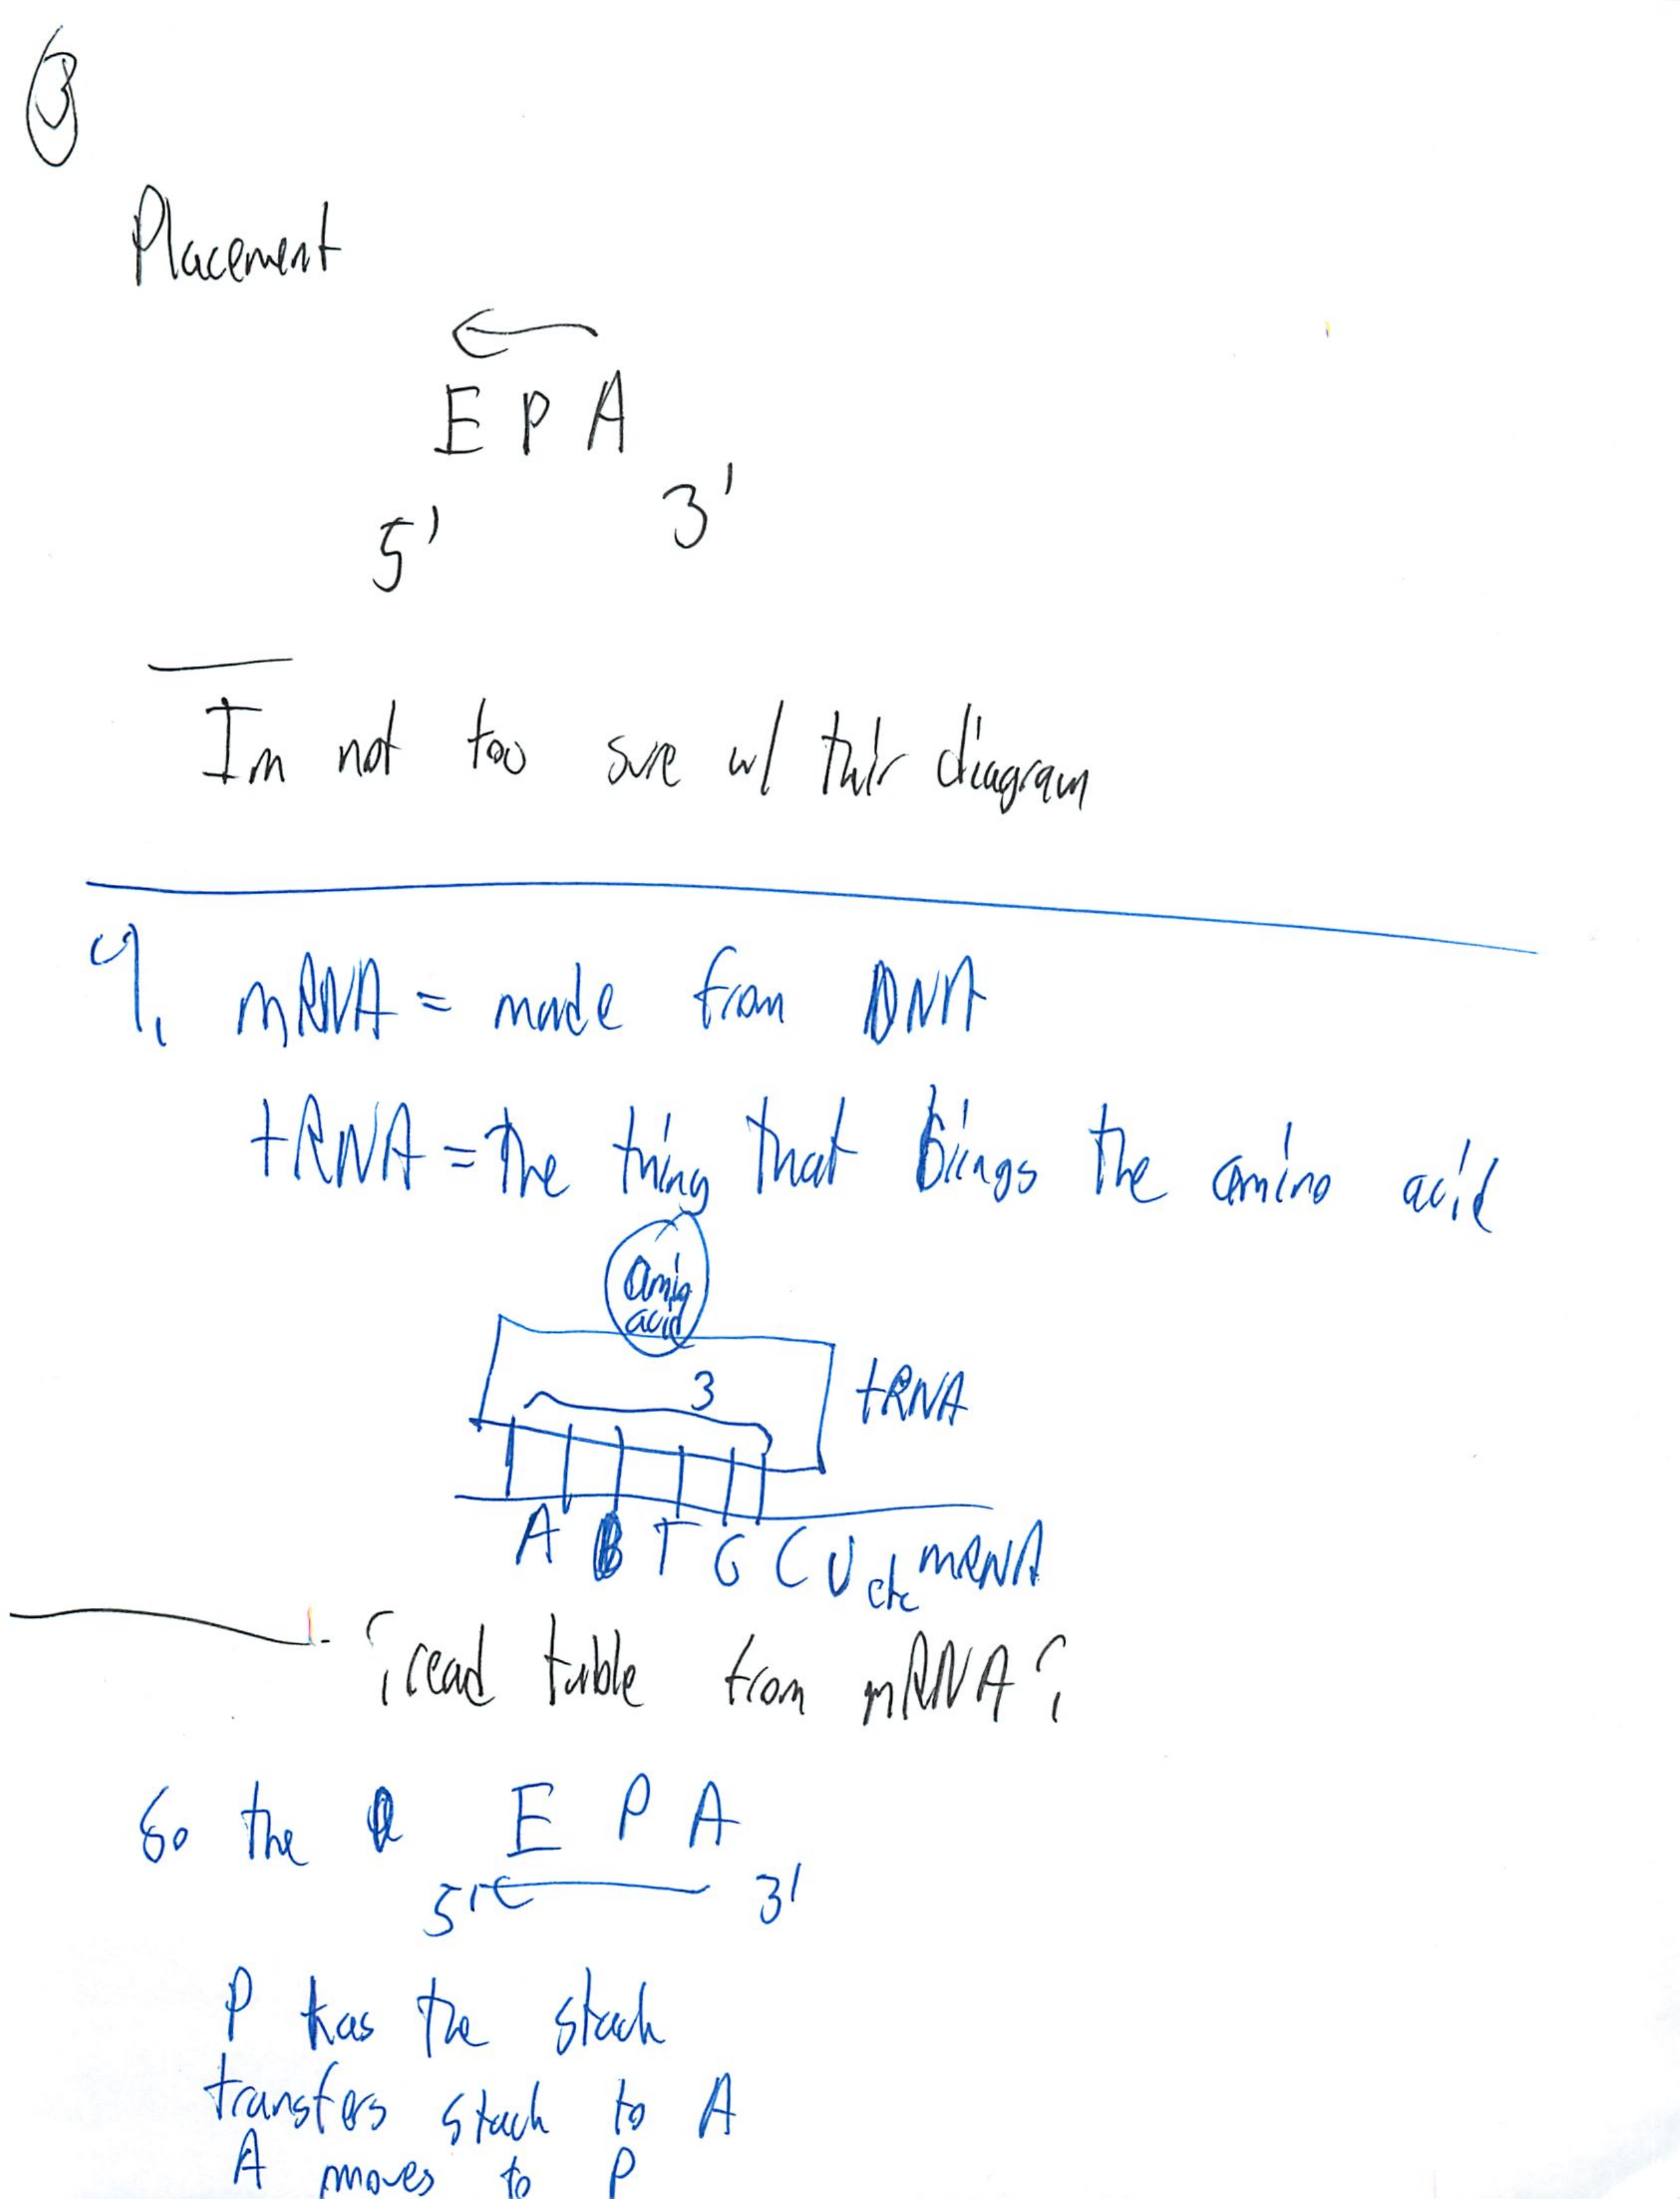 3
Placement
E P A
5' 3'
Im not too sure w/ their diagram
9. mRNA = made from DNA
tRNA = the thing that brings the amino acid
amino
acid
3
tRNA
A T G C U etc mRNA
¿read table from mRNA?
So the E P A
5' 3'
P has the stack
transfers stack to A
A moves to P